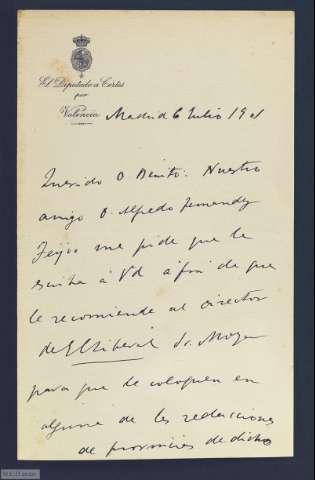 El Diputado a Cortes
por
Valencia
Madrid 6 Julio 1901
Querido D Benito: Nuestro
amigo D. Alfredo Fernandez
Feijoo me pide que le
escriba á Vd á fin de que
le recomiende al Director
de El Liberal Sr. Moya
para que le coloquen en
alguna de las redacciones
de provincias de dicho